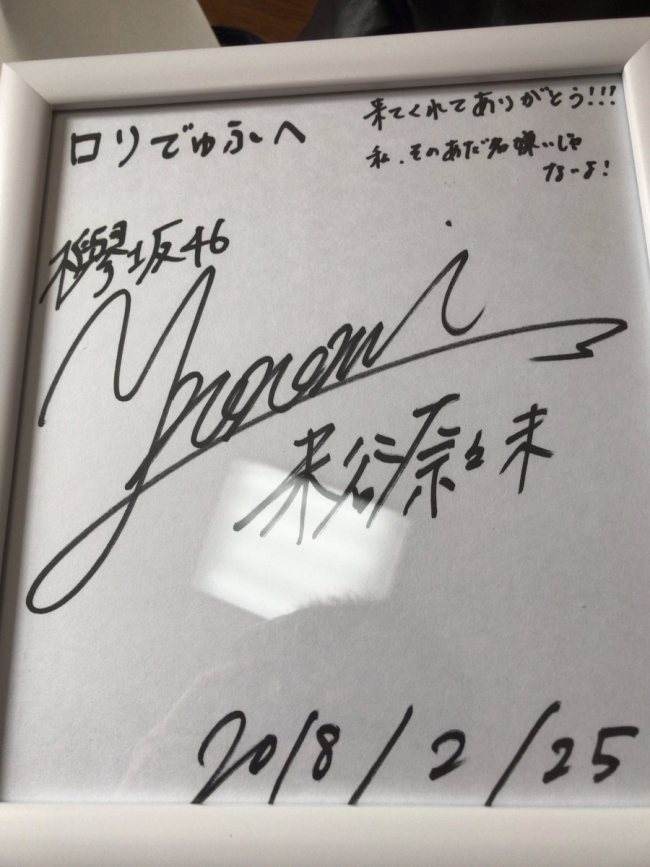 ロリでゅふへ
来てくれてありがとう!!!
私、そのあだ名嫌いじゃ
ないよ!
欅坂46
米谷奈々未
2018/2/25